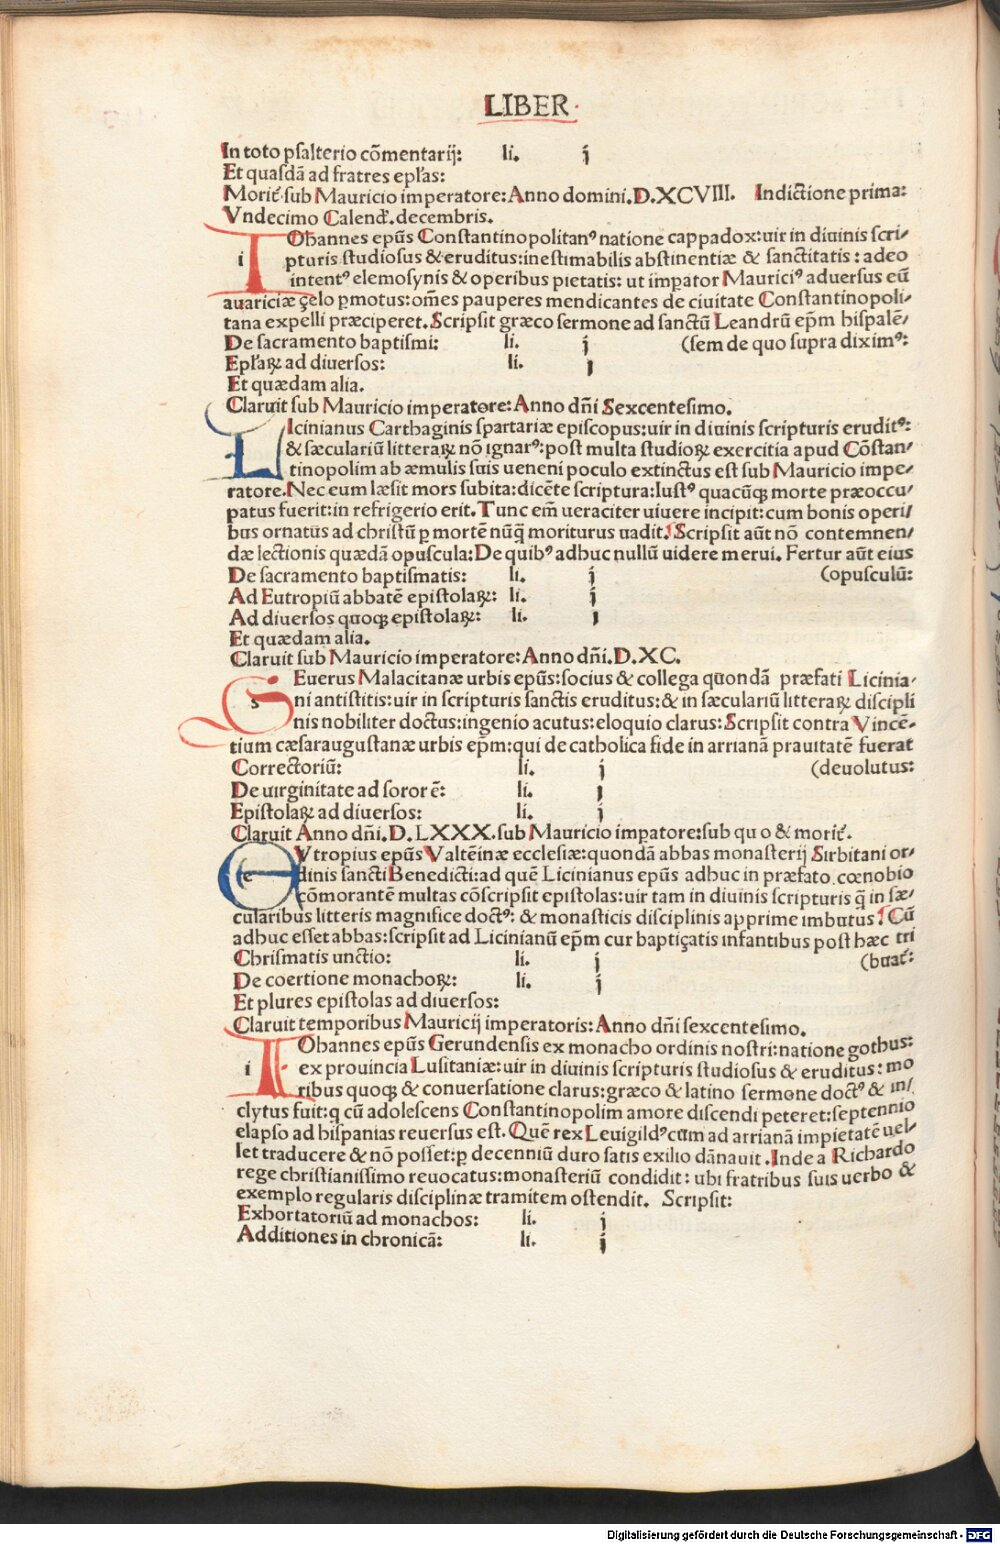 LIBER·
In toto psalterio cōmentarij: li. j
Et quasdā ad fratres epľas:
Morit̃ sub Mauricio imperatore: Anno domini.D.XCVIII. Indictione prima:
Vndecimo Calend̃.decembris.
i IOhannes ep̃us Constantinopolitanꝰ natione cappadox:uir in diuinis scri/
pturis studiosus & eruditus:inestimabilis abstinentiæ & sanctitatis: adeo
intentꝰ elemosynis & operibus pietatis: ut imp̱ator Mauriciꝰ aduersus eū
auariciæ çelo p̱motus:om̃es pauperes mendicantes de ciuitate Constantinopoli/
tana expelli præciperet.Scripsit græco sermone ad sanctū Leandrū ep̃m hispalē/
De sacramento baptismi: li. j (sem de quo supra diximꝰ:
Epľaꝝ ad diuersos: li. j
Et quædam alia.
Claruit sub Mauricio imperatore:Anno dñi Sexcentesimo.
LIcinianus Carthaginis spartariæ episcopus:uir in diuinis scripturis eruditꝰ:
& sæculariū litteraꝝ nō ignarꝰ:post multa studioꝝ exercitia apud Cōstan/
tinopolim ab æmulis suis ueneni poculo extinctus est sub Mauricio impe/
ratore.Nec eum læsit mors subita:dicēte scriptura:Iustꝰ quacūqꝫ morte præoccu/
patus fuerit:in refrigerio erit.Tunc em̃ ueraciter uiuere incipit:cum bonis operi/
bus ornatus ad christū p̱ mortē nūq̄ moriturus uadit.Scripsit aūt nō contemnen/
dæ lectionis quædā opuscula:De quibꝰ adhuc nullū uidere merui. Fertur aūt eius
De sacramento baptismatis: li. j (opusculū:
Ad Eutropiū abbatē epistolaꝝ: li. j
Ad diuersos quoqꝫ epistolaꝝ: li. j
Et quædam alia.
Claruit sub Mauricio imperatore:Anno dñi.D.XC.
s SEuerus Malacitanæ urbis ep̃us:socius & collega quondā præfati Licinia/
ni antistitis:uir in scripturis sanctis eruditus:& in sæculariū litteraꝝ discipli
nis nobiliter doctus:ingenio acutus:eloquio clarus:Scripsit contra Vincē/
tium cæsaraugustanæ urbis ep̃m:qui de catholica fide in arrianā prauitatē fuerat
Correctoriū: li. j (deuolutus:
De uirginitate ad sororē: li. j
Epistolaꝝ ad diuersos: li. j
Claruit Anno dñi.D.LXXX.sub Mauricio imp̱atore:sub quo & morit̃.
e EVtropius ep̃us Valtēinæ ecclesiæ:quondā abbas monasterij Sirbitani or/
dinis sancti Benedicti:ad quē Licinianus ep̃us adhuc in præfato cœnobio
cōmorantē multas cōscripsit epistolas:uir tam in diuinis scripturis q̄ in sæ/
cularibus litteris magnifice doctꝰ: & monasticis disciplinis apprime imbutus: Cū
adhuc esset abbas:scripsit ad Licinianū ep̃m cur baptiçatis infantibus post hæc tri
Chrismatis unctio: li. j (buat̃:
De coertione monachoꝝ: li. j
Et plures epistolas ad diuersos:
Claruit temporibus Mauricij imperatoris: Anno dñi sexcentesimo.
i IOhannes ep̃us Gerundensis ex monacho ordinis nostri:natione gothus:
ex prouincia Lusitaniæ:uir in diuinis scripturis studiosus & eruditus: mo
ribus quoqꝫ & conuersatione clarus:græco & latino sermone doctꝰ & in/
clytus fuit:q cū adolescens Constantinopolim amore discendi peteret:septennio
elapso ad hispanias reuersus est.Quē rex Leuigildꝰ cum ad arrianā impietatē uel/
let traducere & nō posset:p̱ decenniū duro satis exilio dānauit.Inde a Richardo
rege christianissimo reuocatus:monasteriū condidit: ubi fratribus suis uerbo &
exemplo regularis disciplinæ tramitem ostendit. Scripsit:
Exhortatoriū ad monachos: li. j
Additiones in chronicā: li. j
Digitalisierung gefördert durch die Deutsche Forschungsgemeinschaft - DFG